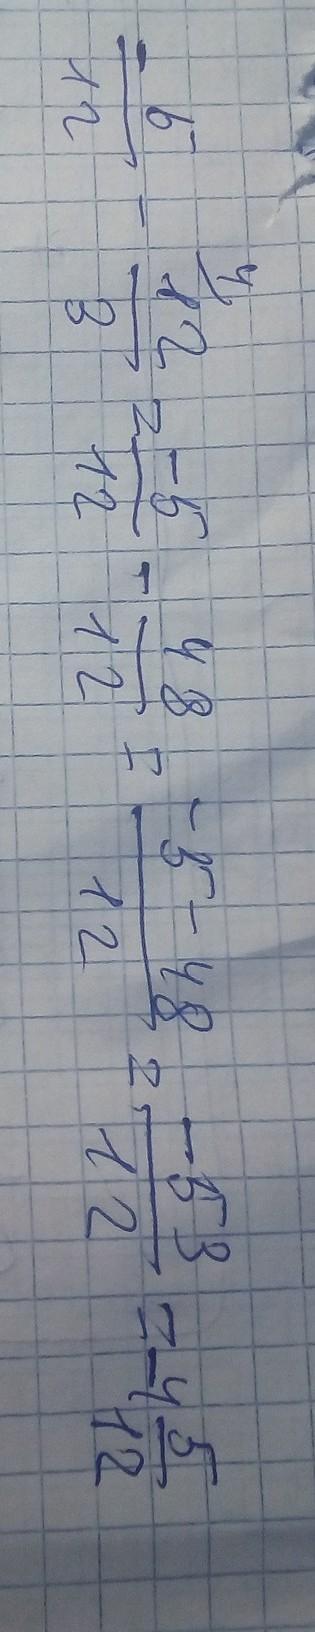 -5/12 - 12/3 ⁴⁾ = -5/12 - 48/12 = (-5-48)/12 = -53/12 = -4 5/12